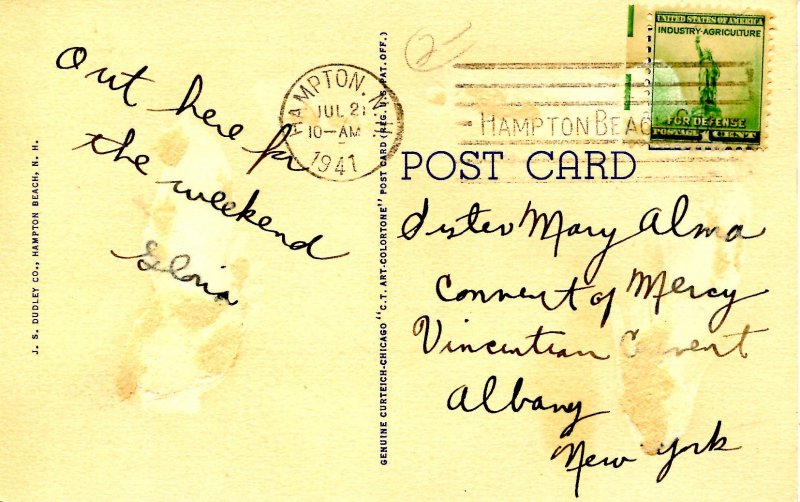 Out here for
the weekend
Gloria
J. S. DUDLEY CO., HAMPTON BEACH, N. H.
GENUINE CURTEICH-CHICAGO "C.T. ART-COLORTONE" POST CARD (REG. U.S. PAT. OFF.)
HAMPTON, N.H.
JUL 21
10-AM
1941
HAMPTON BEACH
UNITED STATES OF AMERICA
INDUSTRY-AGRICULTURE
FOR DEFENSE
POSTAGE 1 CENT
POST CARD
Sister Mary Alma
Convent of Mercy
Vincentian Convent
Albany
New York